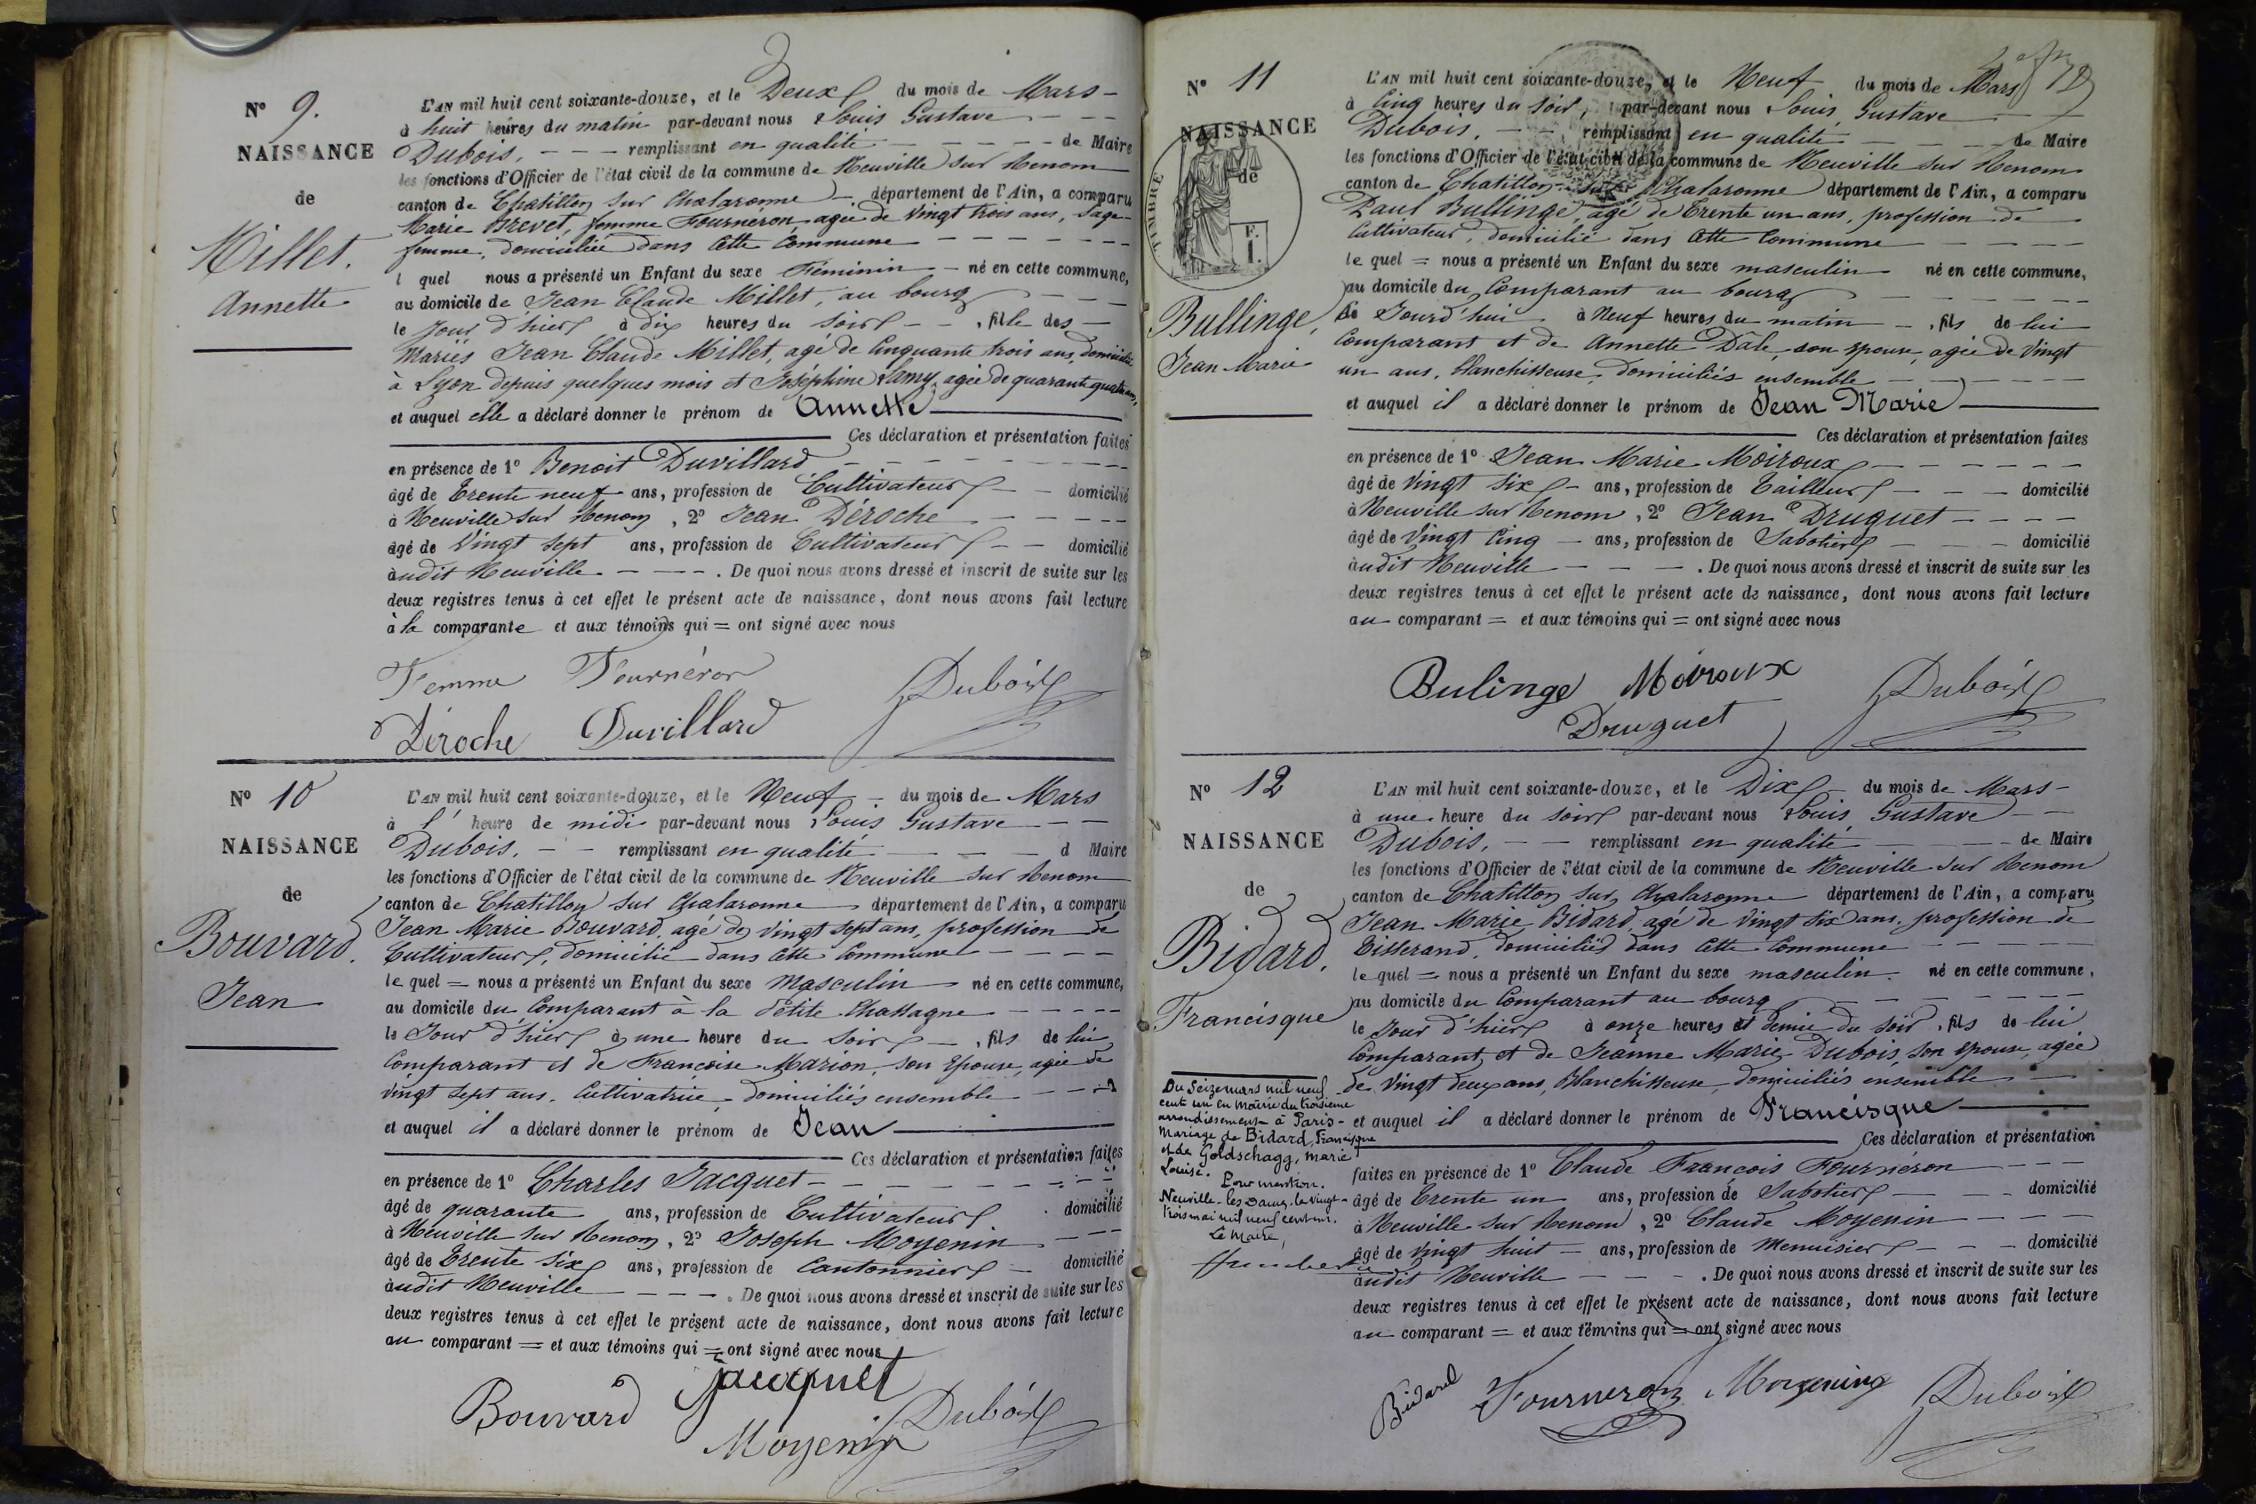 N° 9.
NAISSANCE
de
Millet.
Annette
L'AN mil huit cent soixante-douze, et le Deux du mois de Mars
à huit heures du matin par-devant nous Louis Gustave
Dubois, remplissant en qualité de Maire
les fonctions d'Officier de l'état civil de la commune de Neuville sur Renom
canton de Chatillon sur Chalaronne département de l'Ain, a comparu
Marie Brevet, femme Fournéron, agée de vingt trois ans, Sage-
femme, domiciliée dans cette Commune
l quel nous a présenté un Enfant du sexe Féminin né en cette commune,
au domicile de Jean Claude Millet, au bourg
le jour d'hier à dix heures du soir, fille des
mariés Jean Claude Millet, agé de Cinquante trois ans, domicilié
à Lyon depuis quelques mois et Joséphine Lamy, agée de quarante quatre ans,
et auquel elle a déclaré donner le prénom de Annette
Ces déclaration et présentation faites
en présence de 1° Benoit Duvillard
âgé de Trente neuf ans, profession de Cultivateur domicilié
à Neuville sur Renom, 2° Jean Déroche
âgé de Vingt sept ans, profession de Cultivateur domicilié
audit Neuville. De quoi nous avons dressé et inscrit de suite sur les
deux registres tenus à cet effet le présent acte de naissance, dont nous avons fait lecture
à la comparante et aux témoins qui = ont signé avec nous
Femme Fournéron Dubois
Déroche Duvillard
N° 10
NAISSANCE
de
Bouvard.
Jean
L'AN mil huit cent soixante-douze, et le Neuf du mois de Mars
à l' heure de midi par-devant nous Louis Gustave
Dubois, remplissant en qualité d Maire
les fonctions d'Officier de l'état civil de la commune de Neuville sur Renom
canton de Chatillon sur Chalaronne département de l'Ain, a comparu
Jean Marie Bouvard, agé de vingt sept ans, profession de
Cultivateur, domicilié dans cette Commune
le quel = nous a présenté un Enfant du sexe Masculin né en cette commune,
au domicile du Comparant à la Petite Chassagne
le Jour d'hier à une heure du soir, fils de lui
Comparant et de Françoise Marion, son Epouse, agée de
vingt sept ans, Cultivatrice, domiciliés ensemble
et auquel il a déclaré donner le prénom de Jean
Ces déclaration et présentation faites
en présence de 1° Charles Jacquet
âgé de quarante ans, profession de Cultivateur domicilié
à Neuville sur Renom, 2° Joseph Moyenin
âgé de Trente six ans, profession de Cantonnier domicilié
audit Neuville. De quoi nous avons dressé et inscrit de suite sur les
deux registres tenus à cet effet le présent acte de naissance, dont nous avons fait lecture
au comparant = et aux témoins qui = ont signé avec nous
Jacquet
Bouvard Dubois
Moyenin
72
N° 11
NAISSANCE
de
TIMBRE
F.
1.
Bullinge,
Jean Marie
L'AN mil huit cent soixante-douze, et le Neuf du mois de Mars
à Cinq heures du soir, par-devant nous Louis, Gustave
Dubois, remplissant en qualité de Maire
les fonctions d'Officier de l'état civil de la commune de Neuville sur Renom
canton de Chatillon sur Chalaronne département de l'Ain, a comparu
Paul Bullinge, agé de Trente un ans, profession de
Cultivateur, domicilié dans cette Commune
le quel = nous a présenté un Enfant du sexe masculin né en cette commune,
au domicile du Comparant au bourg
ce Jourd'hui à Neuf heures du matin, fils de lui
Comparant et de Annette Dâle, son épouse, agée de Vingt
un ans, blanchisseuse, Domiciliés ensemble
et auquel il a déclaré donner le prénom de Jean Marie
Ces déclaration et présentation faites
en présence de 1° Jean Marie Moiroux
âgé de Vingt Six ans, profession de Tailleur domicilié
à Neuville sur Renom, 2° Jean Druguet
âgé de Vingt Cinq ans, profession de Sabotier domicilié
audit Neuville. De quoi nous avons dressé et inscrit de suite sur les
deux registres tenus à cet effet le présent acte de naissance, dont nous avons fait lecture
au comparant = et aux témoins qui = ont signé avec nous
Bulinge Moiroux Dubois
Druguet
N° 12
NAISSANCE
de
Bidard,
Francisque
Du Seize mars mil neuf
cent un en Mairie du troisième
arrondissement à Paris-
Mariage de Bidard, Francisque
et de Goldschagg, Marie
Louise.
Pour mention.
Neuville-les-Dames, le vingt-
trois mai mil neuf cent un.
Le Maire,
Humbert
L'AN mil huit cent soixante-douze, et le Dix du mois de Mars
à une heure du soir par-devant nous Louis Gustave
Dubois, remplissant en qualité de Maire
les fonctions d'Officier de l'état civil de la commune de Neuville sur Renom
canton de Chatillon sur Chalaronne département de l'Ain, a comparu
Jean Marie Bidard, agé de Vingt Six ans, profession de
Tisserand, domicilié dans cette Commune
le quel = nous a présenté un Enfant du sexe masculin. né en cette commune,
au domicile du Comparant au bourg
le jour d'hier à onze heures et demie du soir, fils de lui
Comparant, et de Jeanne Marie Dubois, son épouse, agée
de Vingt deux ans, Blanchisseuse, domiciliés ensemble
et auquel il a déclaré donner le prénom de Francisque
Ces déclaration et présentation
faites en présence de 1° Claude François Fournéron
âgé de Trente un ans, profession de Sabotier domicilié
à Neuville sur Renom, 2° Claude Moyenin
âgé de Vingt huit ans, profession de Menuisier domicilié
audit Neuville. De quoi nous avons dressé et inscrit de suite sur les
deux registres tenus à cet effet le présent acte de naissance, dont nous avons fait lecture
au comparant = et aux témoins qui = ont signé avec nous
Bidard Fourneron Moyenin Dubois